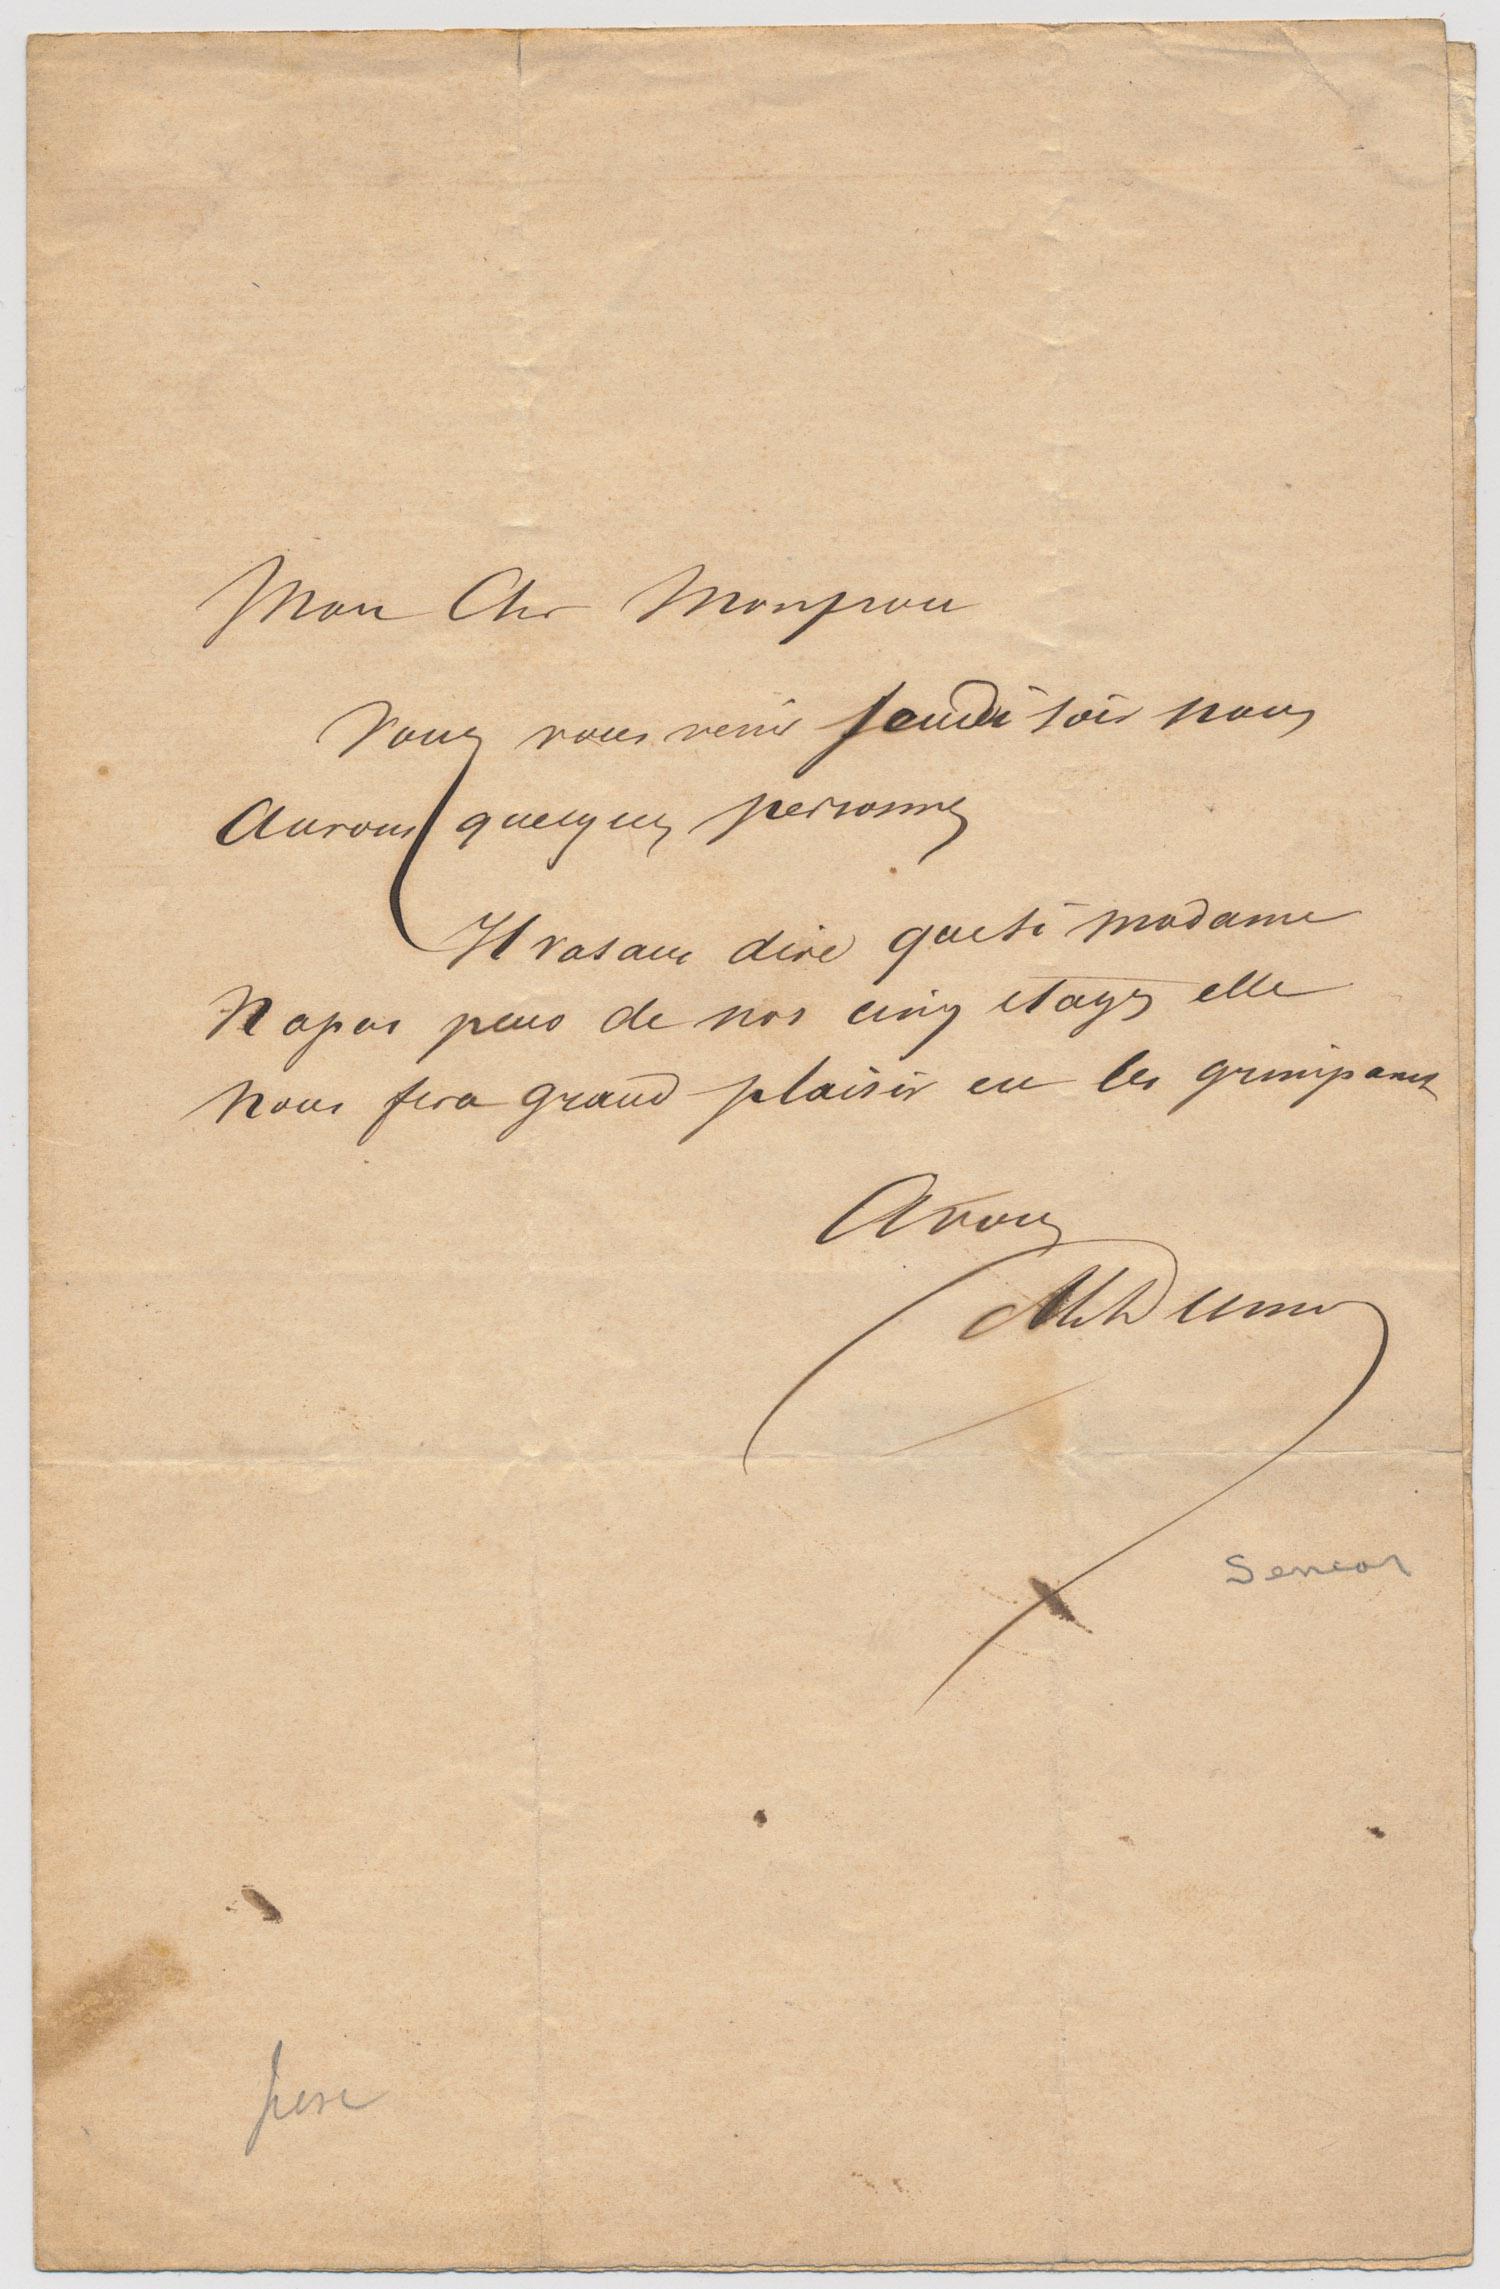 Mon Cher Monpou
Voulez vous venir Jeudi soir nous
Aurons quelques personnes
Il va sans dire que si madame
N a pas peur de nos cinq etages elle
Nous fera grand plaisir en les grimpant
A vous
Alex Dumas
Senior
pere